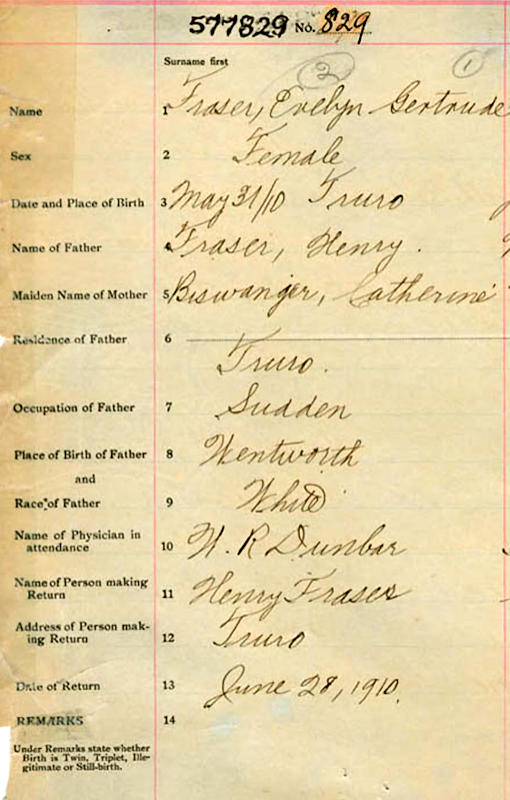 577829 No. 829
Surname first
2 1
Name 1 Fraser, Evelyn Gertrude
Sex 2 Female
Date and Place of Birth 3 May 31/10 Truro
Name of Father 4 Fraser, Henry.
Maiden Name of Mother 5 Biswanger, Catherine
Residence of Father 6
Truro.
Occupation of Father 7 Sudden
Place of Birth of Father 8 Wentworth
and
Race of Father 9 White
Name of Physician in
attendance 10 W. R Dunbar
Name of Person making
Return 11 Henry Fraser
Address of Person mak-
ing Return 12 Truro
Date of Return 13 June 28, 1910.
REMARKS 14
Under Remarks state whether
Birth is Twin, Triplet, Ille-
gitimate or Still-birth.